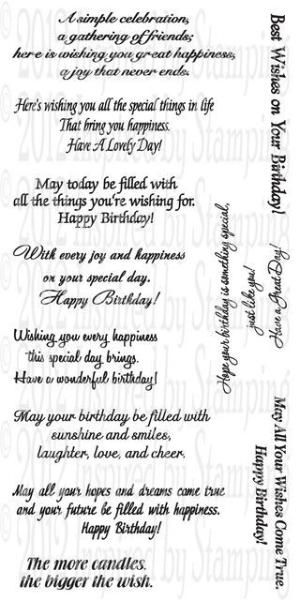 A simple celebration,
a gathering of friends;
here is wishing you great happiness,
a joy that never ends.
Here's wishing you all the special things in life
That bring you happiness.
Have A Lovely Day!
May today be filled with
all the things you're wishing for.
Happy Birthday!
With every joy and happiness
on your special day.
Happy Birthday!
Wishing you every happiness
this special day brings.
Have a wonderful birthday!
May your birthday be filled with
sunshine and smiles,
laughter, love, and cheer.
May all your hopes and dreams come true
and your future be filled with happiness.
Happy Birthday!
The more candles.
the bigger the wish.
Best Wishes on Your Birthday!
Hope your birthday is something special,
just like you!
Have a Great Day!
May All Your Wishes Come True.
Happy Birthday!